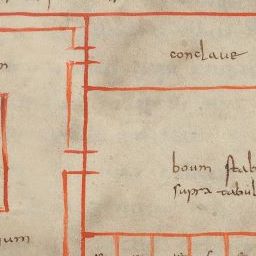 conclave
boum stab
supra tabul